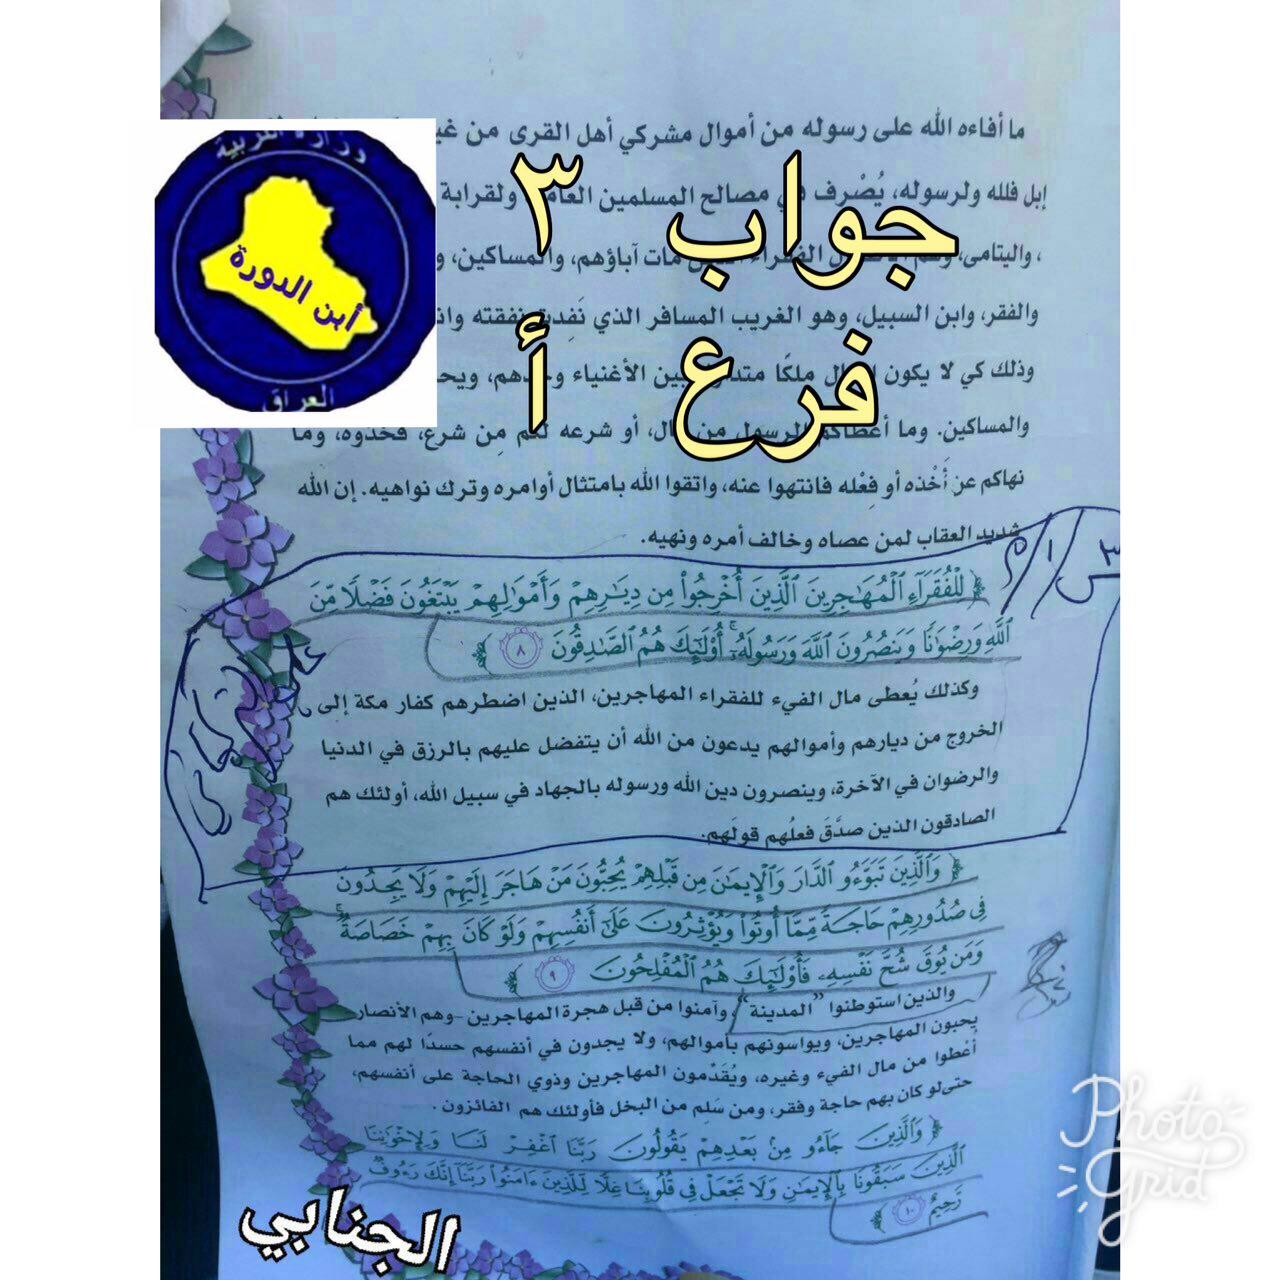 ما أفاءه الله على رسوله من أموال مشركي أهل القرى من غير
إبل فلله ولرسوله، يُصْرف في مصالح المسلمين العامة ولقرابة
، واليتامى، وهم الأطفال الفقراء الذين مات آباؤهم، والمساكين،
والفقر، وابن السبيل، وهو الغريب المسافر الذي نَفِدت نفقته
وذلك كي لا يكون المال ملكًا متداولا بين الأغنياء وحدهم،
والمساكين. وما أعطاكم الرسول من مال، أو شرعه لكم مِن شرع، فخذوه، وما
نهاكم عن أَخْذه أو فِعْله فانتهوا عنه، واتقوا الله بامتثال أوامره وترك نواهيه. إن الله
شديد العقاب لمن عصاه وخالف أمره ونهيه.
وزارة التربية
أبن الدورة
العراق
جواب ٣
فرع أ
س٣/١/م
﴿ لِلْفُقَرَآءِ ٱلْمُهَٰجِرِينَ ٱلَّذِينَ أُخْرِجُواْ مِن دِيَٰرِهِمْ وَأَمْوَٰلِهِمْ يَبْتَغُونَ فَضْلًا مِّنَ
ٱللَّهِ وَرِضْوَٰنًا وَيَنصُرُونَ ٱللَّهَ وَرَسُولَهُۥٓ ۚ أُوْلَٰٓئِكَ هُمُ ٱلصَّٰدِقُونَ ٨ ﴾
وكذلك يُعطى مال الفيء للفقراء المهاجرين، الذين اضطرهم كفار مكة إلى
الخروج من ديارهم وأموالهم يدعون من الله أن يتفضل عليهم بالرزق في الدنيا
والرضوان في الآخرة، وينصرون دين الله ورسوله بالجهاد في سبيل الله، أولئك هم
الصادقون الذين صدَّقَ فعلُهم قولَهم.
﴿ وَٱلَّذِينَ تَبَوَّءُو ٱلدَّارَ وَٱلْإِيمَٰنَ مِن قَبْلِهِمْ يُحِبُّونَ مَنْ هَاجَرَ إِلَيْهِمْ وَلَا يَجِدُونَ
فِى صُدُورِهِمْ حَاجَةً مِّمَّآ أُوتُواْ وَيُؤْثِرُونَ عَلَىٰٓ أَنفُسِهِمْ وَلَوْ كَانَ بِهِمْ خَصَاصَةٌ ۚ
وَمَن يُوقَ شُحَّ نَفْسِهِۦ فَأُوْلَٰٓئِكَ هُمُ ٱلْمُفْلِحُونَ ٩ ﴾
والذين استوطنوا "المدينة"، وآمنوا من قبل هجرة المهاجرين -وهم الأنصار
يحبون المهاجرين، ويواسونهم بأموالهم، ولا يجدون في أنفسهم حسدًا لهم مما
أُعْطوا من مال الفيء وغيره، ويُقَدِّمون المهاجرين وذوي الحاجة على أنفسهم،
حتى لو كان بهم حاجة وفقر، ومن سَلِم من البخل فأولئك هم الفائزون.
﴿ وَٱلَّذِينَ جَآءُو مِنۢ بَعْدِهِمْ يَقُولُونَ رَبَّنَا ٱغْفِرْ لَنَا وَلِإِخْوَٰنِنَا
ٱلَّذِينَ سَبَقُونَا بِٱلْإِيمَٰنِ وَلَا تَجْعَلْ فِى قُلُوبِنَا غِلًّا لِّلَّذِينَ ءَامَنُواْ رَبَّنَآ إِنَّكَ رَءُوفٌ
رَّحِيمٌ ١٠ ﴾
الجنابي
Photo
Grid